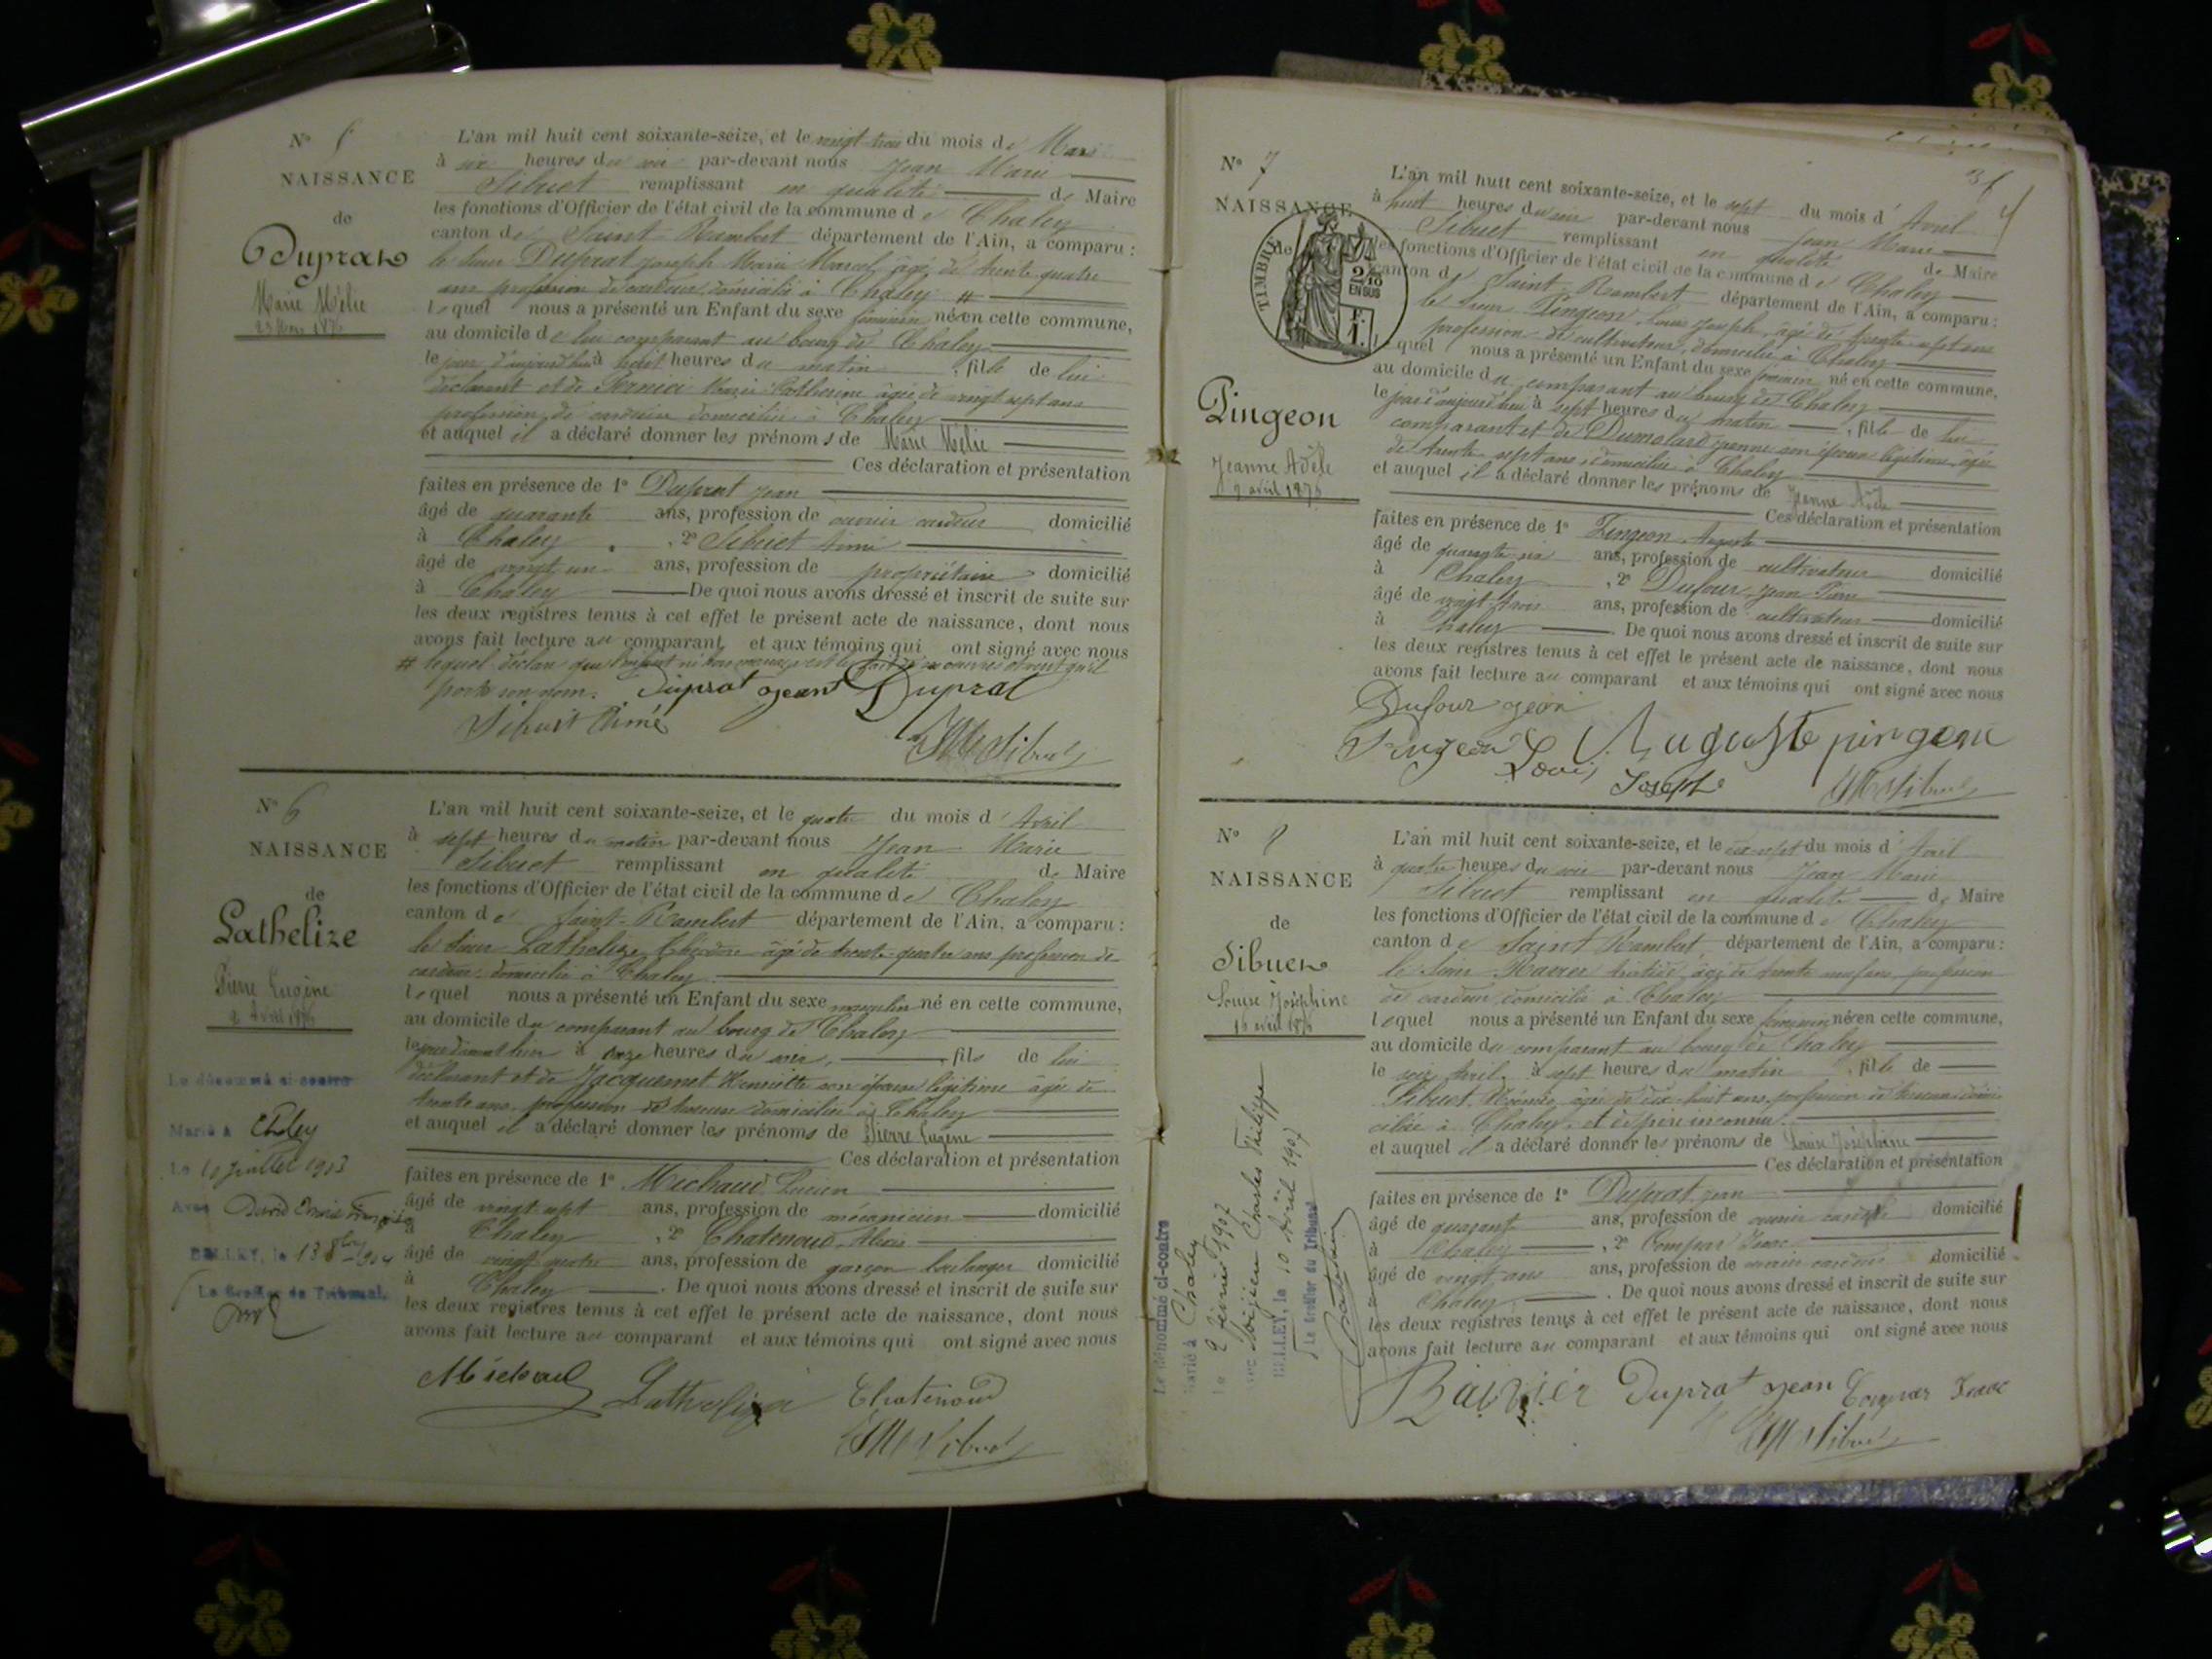 N° 5
NAISSANCE
de
Duprat
Marie Mélie
23 Mars 1876
L'an mil huit cent soixante-seize, et le vingt trois du mois de Mars
à six heures du soir par-devant nous Jean Marie
Sibuet remplissant en qualité de Maire
les fonctions d'Officier de l'état civil de la commune de Chaley
canton de Saint-Rambert département de l'Ain, a comparu :
le sieur Duprat Joseph Marie Marcel, âgé de trente quatre
ans profession de cardeur, domicilié à Chaley #
lequel nous a présenté un Enfant du sexe féminin née en cette commune,
au domicile de lui comparant au bourg de Chaley
le jour d'aujourd'hui à huit heures du matin , fille de lui
déclarant et de Marie Catherine âgée de vingt sept ans
profession de cardeuse domiciliée à Chaley
et auquel il a déclaré donner les prénoms de Marie Mélie
Ces déclaration et présentation
faites en présence de 1° Duprat Jean
âgé de quarante ans, profession de ouvrier cardeur domicilié
à Chaley , 2° Sibuet Aimé
âgé de vingt un ans, profession de propriétaire domicilié
à Chaley De quoi nous avons dressé et inscrit de suite sur
les deux registres tenus à cet effet le présent acte de naissance, dont nous
avons fait lecture au comparant et aux témoins qui ont signé avec nous
# lequel déclare que l'enfant né hors mariage est le fait de ses œuvres et veut qu'il
porte son nom. Duprat jean Duprat
Sibuet Aimé
JM Sibuet
N° 6
NAISSANCE
de
Lathelize
Pierre Eugène
Avril 1876
Le dénommé ci-contre
Marié à Chaley
Le 10 juillet 1903
Avec David
BELLEY, le 13 8bre 1904
Le Greffier du Tribunal,
L'an mil huit cent soixante-seize, et le quatre du mois d'Avril
à sept heures du matin par-devant nous Jean Marie
Sibuet remplissant en qualité de Maire
les fonctions d'Officier de l'état civil de la commune de Chaley
canton de Saint-Rambert département de l'Ain, a comparu :
le sieur Lathelize âgé de trente quatre ans profession de
cardeur domicilié à Chaley
lequel nous a présenté un Enfant du sexe masculin né en cette commune,
au domicile du comparant au bourg de Chaley
à onze heures du soir, fils de lui
déclarant et de Jacquemet Henriette son épouse légitime âgée de
trente ans, profession de domiciliée à Chaley
et auquel il a déclaré donner les prénoms de Pierre Eugène
Ces déclaration et présentation
faites en présence de 1° Michaud Lucien
âgé de vingt sept ans, profession de mécanicien domicilié
à Chaley , 2° Chatenoud Alexis
âgé de vingt quatre ans, profession de garçon boulanger domicilié
à Chaley . De quoi nous avons dressé et inscrit de suite sur
les deux registres tenus à cet effet le présent acte de naissance, dont nous
avons fait lecture au comparant et aux témoins qui ont signé avec nous
Michaud Lathelize Chatenoud
JM Sibuet
N° 7
NAISSANCE
de
TIMBRE
2/10
EN SUS
F.
1.
Pingeon
Jeanne Adèle
avril 1876
L'an mil huit cent soixante-seize, et le sept du mois d'Avril
à huit heures du soir par-devant nous Jean Marie
Sibuet remplissant en qualité de Maire
les fonctions d'Officier de l'état civil de la commune de Chaley
canton de Saint-Rambert département de l'Ain, a comparu :
le sieur Pingeon Louis Joseph, âgé de trente sept ans
profession de cultivateur, domicilié à Chaley
lequel nous a présenté un Enfant du sexe féminin né en cette commune,
au domicile du comparant au bourg de Chaley
le jour d'aujourd'hui à sept heures du matin , fille de lui
comparant et de Dumolard Jeanne son épouse légitime, âgée
de trente sept ans, domiciliée à Chaley
et auquel il a déclaré donner les prénoms de Jeanne Adèle
Ces déclaration et présentation
faites en présence de 1° Pingeon Auguste
âgé de quarante six ans, profession de cultivateur domicilié
à Chaley , 2° Dufour Jean
âgé de vingt trois ans, profession de cultivateur domicilié
à Chaley . De quoi nous avons dressé et inscrit de suite sur
les deux registres tenus à cet effet le présent acte de naissance, dont nous
avons fait lecture au comparant et aux témoins qui ont signé avec nous
Dufour jean
Pingeon Louis Joseph Auguste pingeon
JM Sibuet
N° 8
NAISSANCE
de
Sibuet
Louise Joséphine
16 avril 1876
Le dénommé ci-contre
Marié à Chaley
Le 2 février 1907
avec Charles Philippe
BELLEY, le 10 Avril 1907
Le Greffier du Tribunal
L'an mil huit cent soixante-seize, et le dix-sept du mois d'Avril
à quatre heures du soir par-devant nous Jean Marie
Sibuet remplissant en qualité de Maire
les fonctions d'Officier de l'état civil de la commune de Chaley
canton de Saint Rambert département de l'Ain, a comparu :
le sieur âgé de trente neuf ans, profession
de cardeur domicilié à Chaley
lequel nous a présenté un Enfant du sexe féminin née en cette commune,
au domicile du comparant au bourg de Chaley
le seize Avril à sept heures du matin , fille de
Sibuet âgée de dix-huit ans, profession de domi-
ciliée à Chaley, et de père inconnu
et auquel il a déclaré donner les prénoms de Louise Joséphine
Ces déclaration et présentation
faites en présence de 1° Duprat Jean
âgé de quarante ans, profession de ouvrier cardeur domicilié
à Chaley , 2° Compar Isaac
âgé de vingt ans, profession de ouvrier cardeur domicilié
à Chaley . De quoi nous avons dressé et inscrit de suite sur
les deux registres tenus à cet effet le présent acte de naissance, dont nous
avons fait lecture au comparant et aux témoins qui ont signé avec nous
Duprat jean Compar Isaac
JM Sibuet